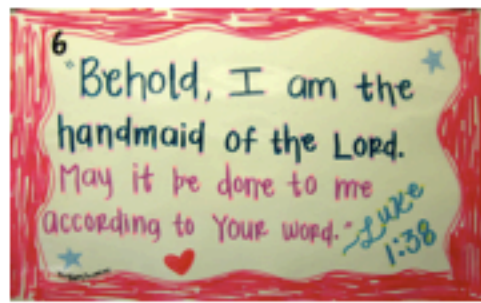 6
"Behold, I am the
handmaid of the Lord.
May it be done to me
according to Your word."
~Luke
1:38